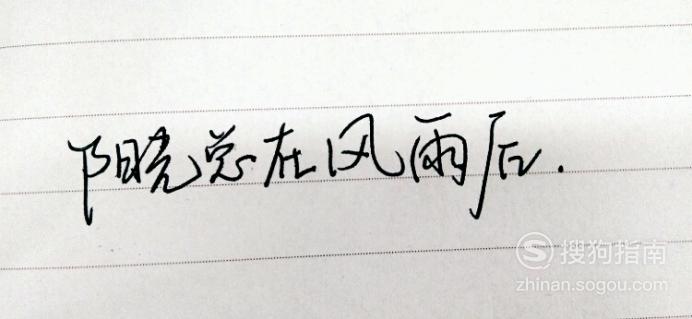 阳光总在风雨后.
搜狗指南
zhinan.sogou.com